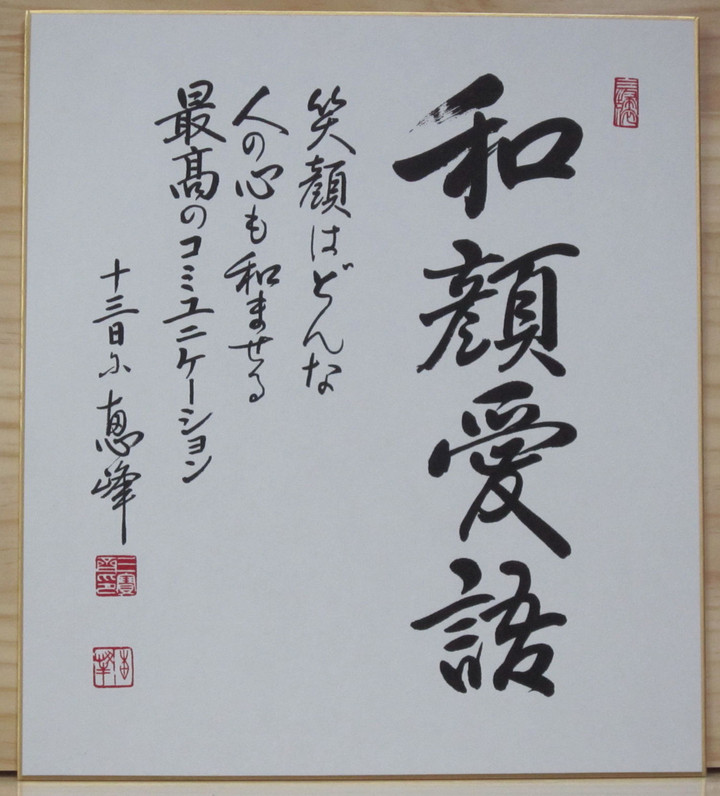 和顔愛語
笑顔はどんな
人の心も和ませる
最高のコミュニケーション
恵峰